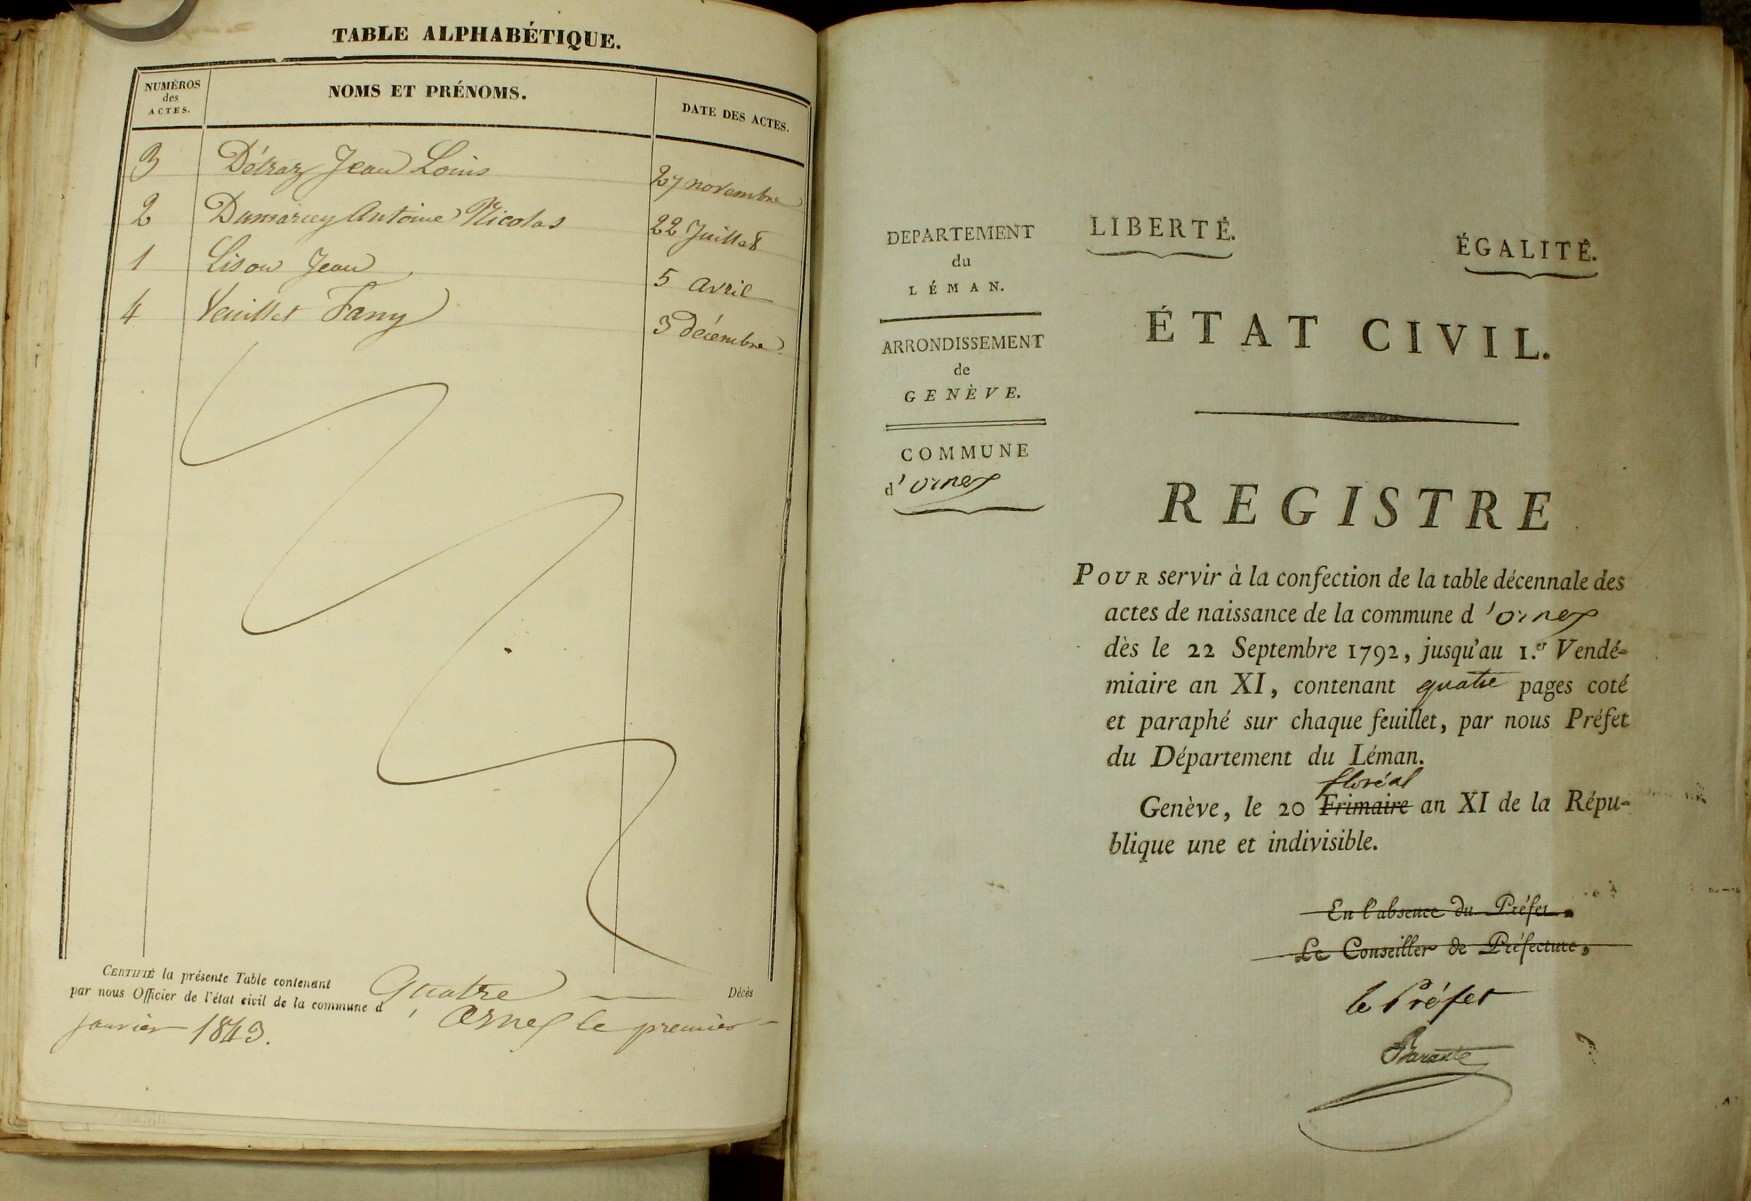 TABLE ALPHABÉTIQUE.
NUMÉROS
des
ACTES.
NOMS ET PRÉNOMS.
DATE DES ACTES.
3 Détraz Jean Louis 27 novembre
2 Dumarcey Antoine Nicolas 22 Juillet
1 Lison Jean 5 avril
4 Veuillet Fany 3 décembre
CERTIFIÉ la présente Table contenant quatre Décès
par nous Officier de l'état civil de la commune d' Ornex le premier
janvier 1843.
DEPARTEMENT
du
LÉMAN.
ARRONDISSEMENT
de
GENÈVE.
COMMUNE
d'ornex
LIBERTÉ.
ÉGALITÉ.
ÉTAT CIVIL.
REGISTRE
POUR servir à la confection de la table décennale des
actes de naissance de la commune d'ornex
dès le 22 Septembre 1792, jusqu'au 1.er Vendé-
miaire an XI, contenant quatre pages coté
et paraphé sur chaque feuillet, par nous Préfet
du Département du Léman.
floréal
Genève, le 20 Frimaire an XI de la Répu-
blique une et indivisible.
En l'absence du Préfet.
Le Conseiller de Préfecture,
le Préfet
Barante